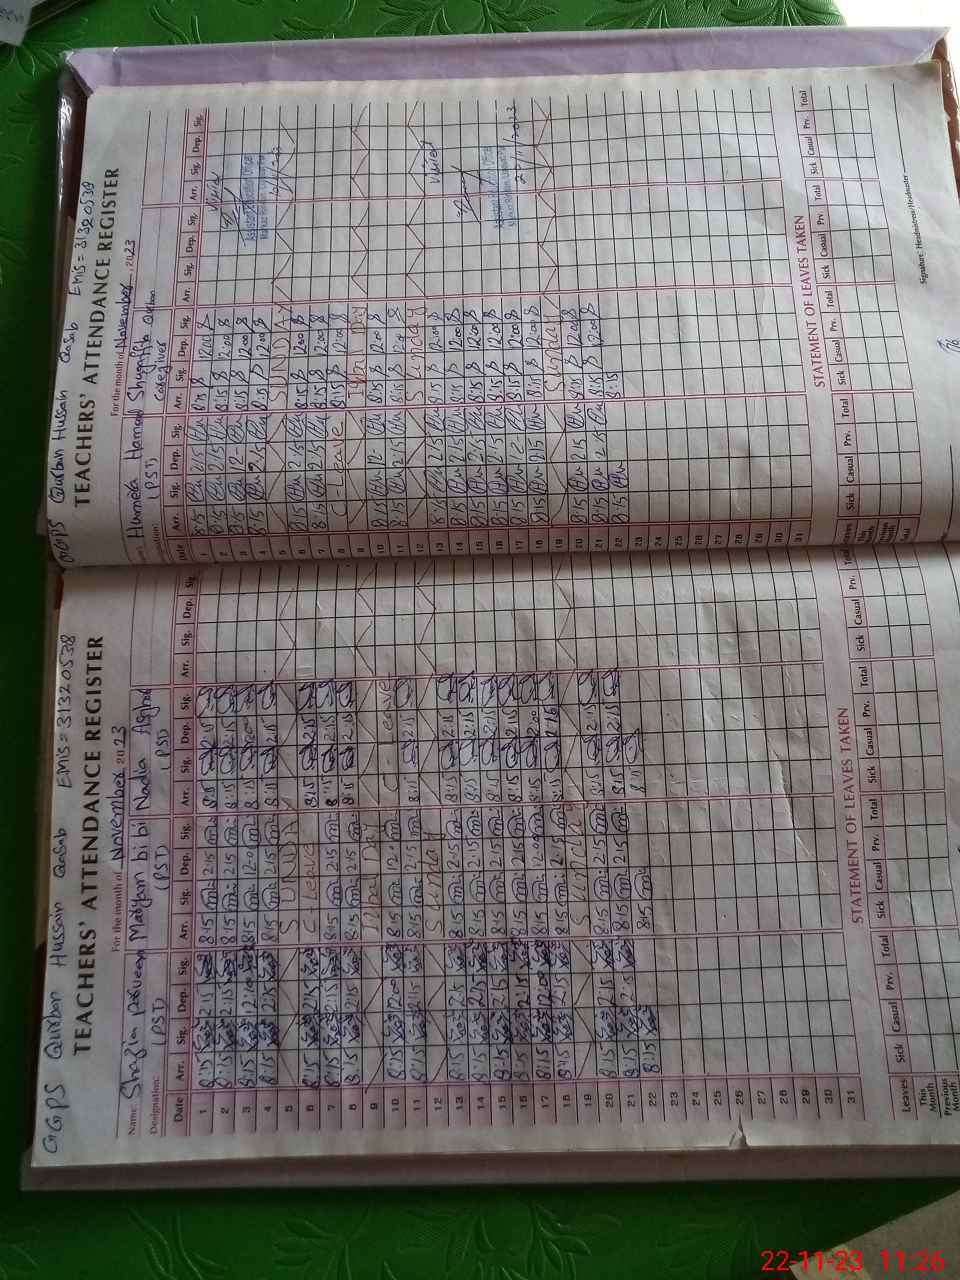 GGPS Qurban Hussain Qasab EMIS = 31320538
TEACHERS' ATTENDANCE REGISTER
For the month of November 2023
Name: Shazia Parveen Maryam bi bi Nadia Asghar
Designation: (PST) (PST) (PST)
Date Arr. Sig. Dep. Sig. Arr. Sig. Dep. Sig. Arr. Sig. Dep. Sig. Arr. Sig. Dep. Sig.
1 8:15 2:15 8:15 2:15 8:15 2:15
2 8:15 2:15 8:15 2:15 8:15 2:15
3 8:15 12:00 8:15 12:0 8:15
4 8:15 2:15 8:15 2:15 8:15 2:15
5 SUNDAY
6 8:15 2:15 C-Leave 8:15 2:15
7 8:15 2:15 8:15 2:15 8:15 2:15
8 8:15 2:15 8:15 2:15 8:15 2:15
9 Iqbal Day
10 8:15 12:00 8:15 12:0 C-Leave
11 8:15 2:15 8:15 2:15 8:15 2:15
12 Sunday
13 8:15 2:15 8:15 2:15 8:15 2:15
14 8:15 2:15 8:15 2:15 8:15 2:15
15 8:15 2:15 8:15 2:15 8:15 2:15
16 8:15 2:15 8:15 2:15 8:15 2:15
17 8:15 12:00 8:15 12:00 8:15 12:00
18 8:15 2:15 8:15 2:15 8:15 2:15
19 Sunday
20 8:15 2:15 8:15 2:15 8:15 2:15
21 8:15 2:15 8:15 2:15 8:15 2:15
22 8:15 8:15 8:15
23
24
25
26
27
28
29
30
31
STATEMENT OF LEAVES TAKEN
Leaves Sick Casual Prv. Total Sick Casual Prv. Total Sick Casual Prv. Total Sick Casual Prv. Total
This Month
Previous Month
GGPS Qurban Hussain Qasab EMIS = 31320538
TEACHERS' ATTENDANCE REGISTER
For the month of November, 2023
Humera Hamad Shugafta
(PST) Caregiver
Date Arr. Sig. Dep. Sig. Arr. Sig. Dep. Sig. Arr. Sig. Dep. Sig. Arr. Sig. Dep. Sig.
1 8:15 2:15 8:15 12:00
2 8:15 2:15 8:15 12:00
3 8:15 12 8:15 12:00
4 8:15 2:15 8:15 12:00
5 SUNDAY
6 8:15 2:15 8:15 12:00
7 8:15 2:15 8:15 12:00
8 C-Leave 8:15 12:00
9 Iqbal Day
10 8:15 12 8:15 12:00
11 8:15 2:15 8:15 12:00
12 Sunday
13 8:15 2:15 8:15 12:00
14 8:15 2:15 8:15 12:00
15 8:15 2:15 8:15 12:00
16 8:15 2:15 8:15 12:00
17 8:15 12 8:15 12:00
18 8:15 2:15 8:15 12:00
19 Sunday
20 8:15 2:15 8:15 12:00
21 8:15 2:15 8:15 12:00
22 8:15 8:15
23
24
25
26
27
28
29
30
31
STATEMENT OF LEAVES TAKEN
Leaves Sick Casual Prv. Total Sick Casual Prv. Total Sick Casual Prv. Total Sick Casual Prv. Total
This Month
Previous Month
Total
Signature: Headmistress/Headmaster
22-11-23 11:26